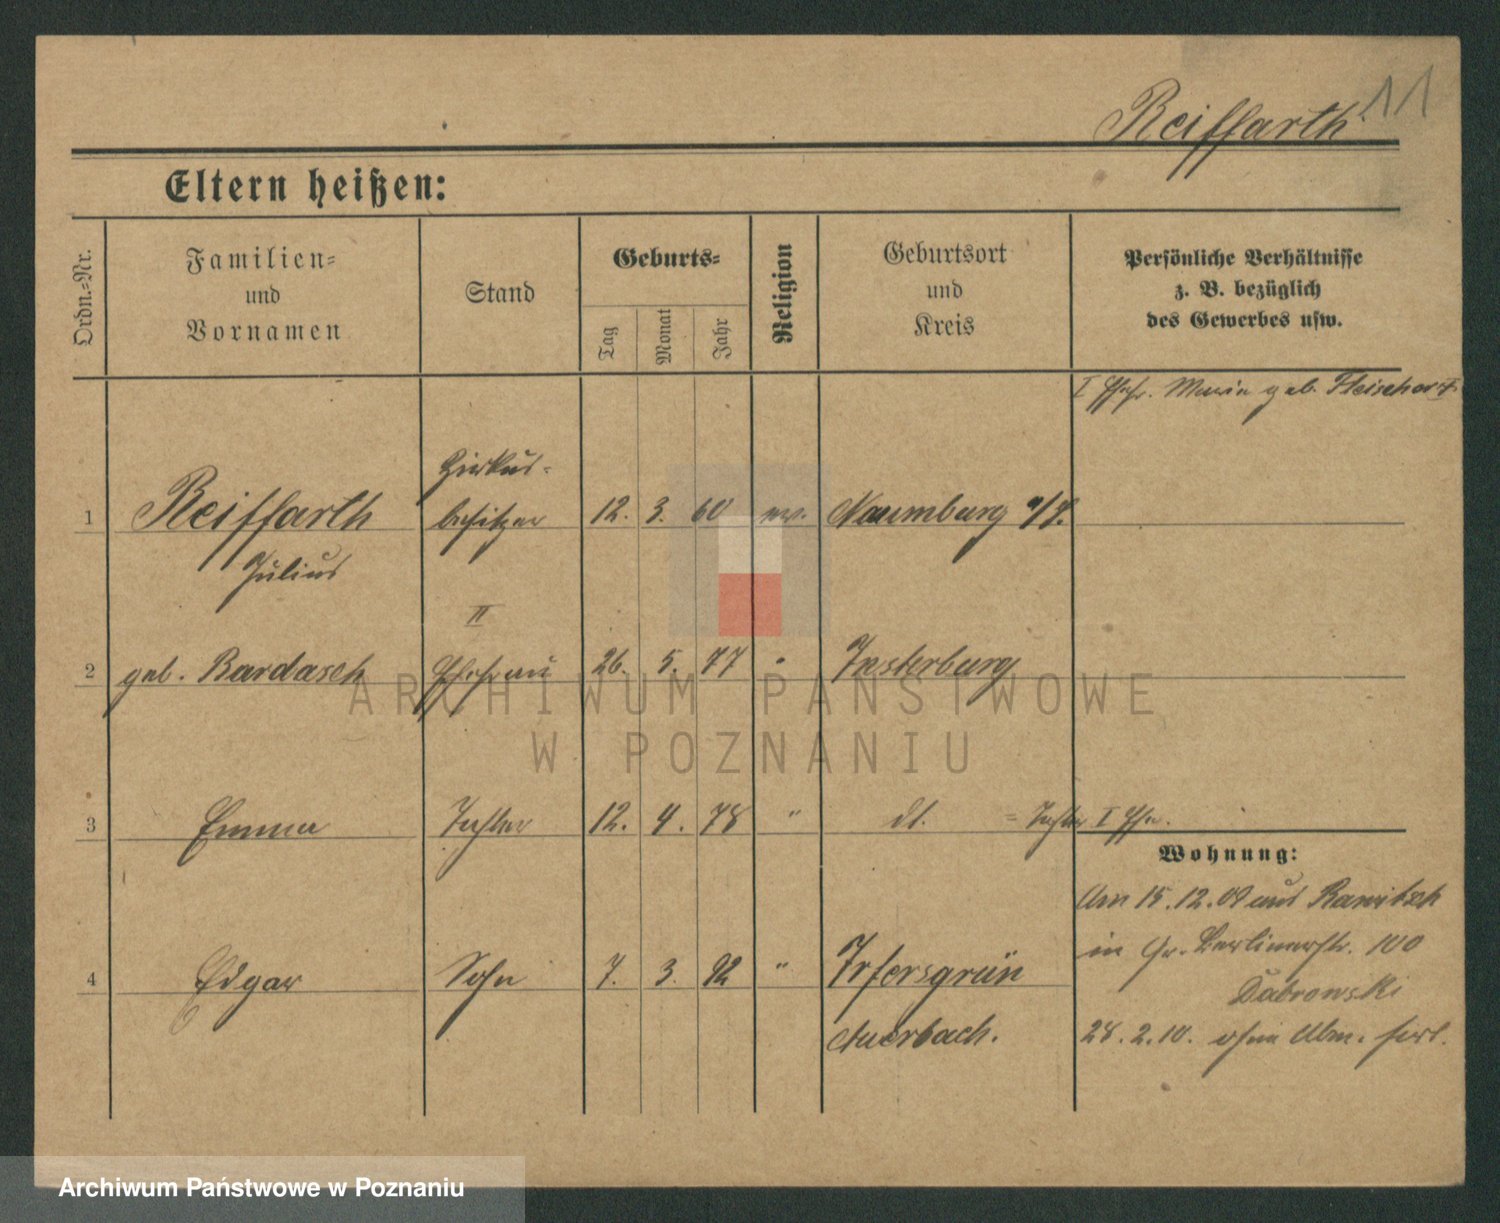 11
Reiffarth
Eltern heißen:
Ordn.-Nr.
Familien-
und
Vornamen
Stand
Geburts-
Tag
Monat
Jahr
Religion
Geburtsort
und
Kreis
Persönliche Verhältnisse
z. B. bezüglich
des Gewerbes usw.
I Ehefr. Marie geb. Fleischer
Zirkus-
1 Reiffarth besitzer 12. 3. 60 ev. Naumburg a/S.
Julius
II
2 geb. Bardasch Ehefrau 26. 5. 77 Insterburg
ARCHIWUM PAŃSTWOWE
W POZNANIU
3 Emma Tochter 12. 4. 78 " dt. = Tochter I Ehe.
Wohnung:
Am 15.12.09 aus Rawitsch
in Gr. Berlinerstr. 100
Dabrowski
4 Edgar Sohn 7. 3. 92 " Irfersgrün
Auerbach.
28.2.10. ohne Abm. fort.
Archiwum Państwowe w Poznaniu